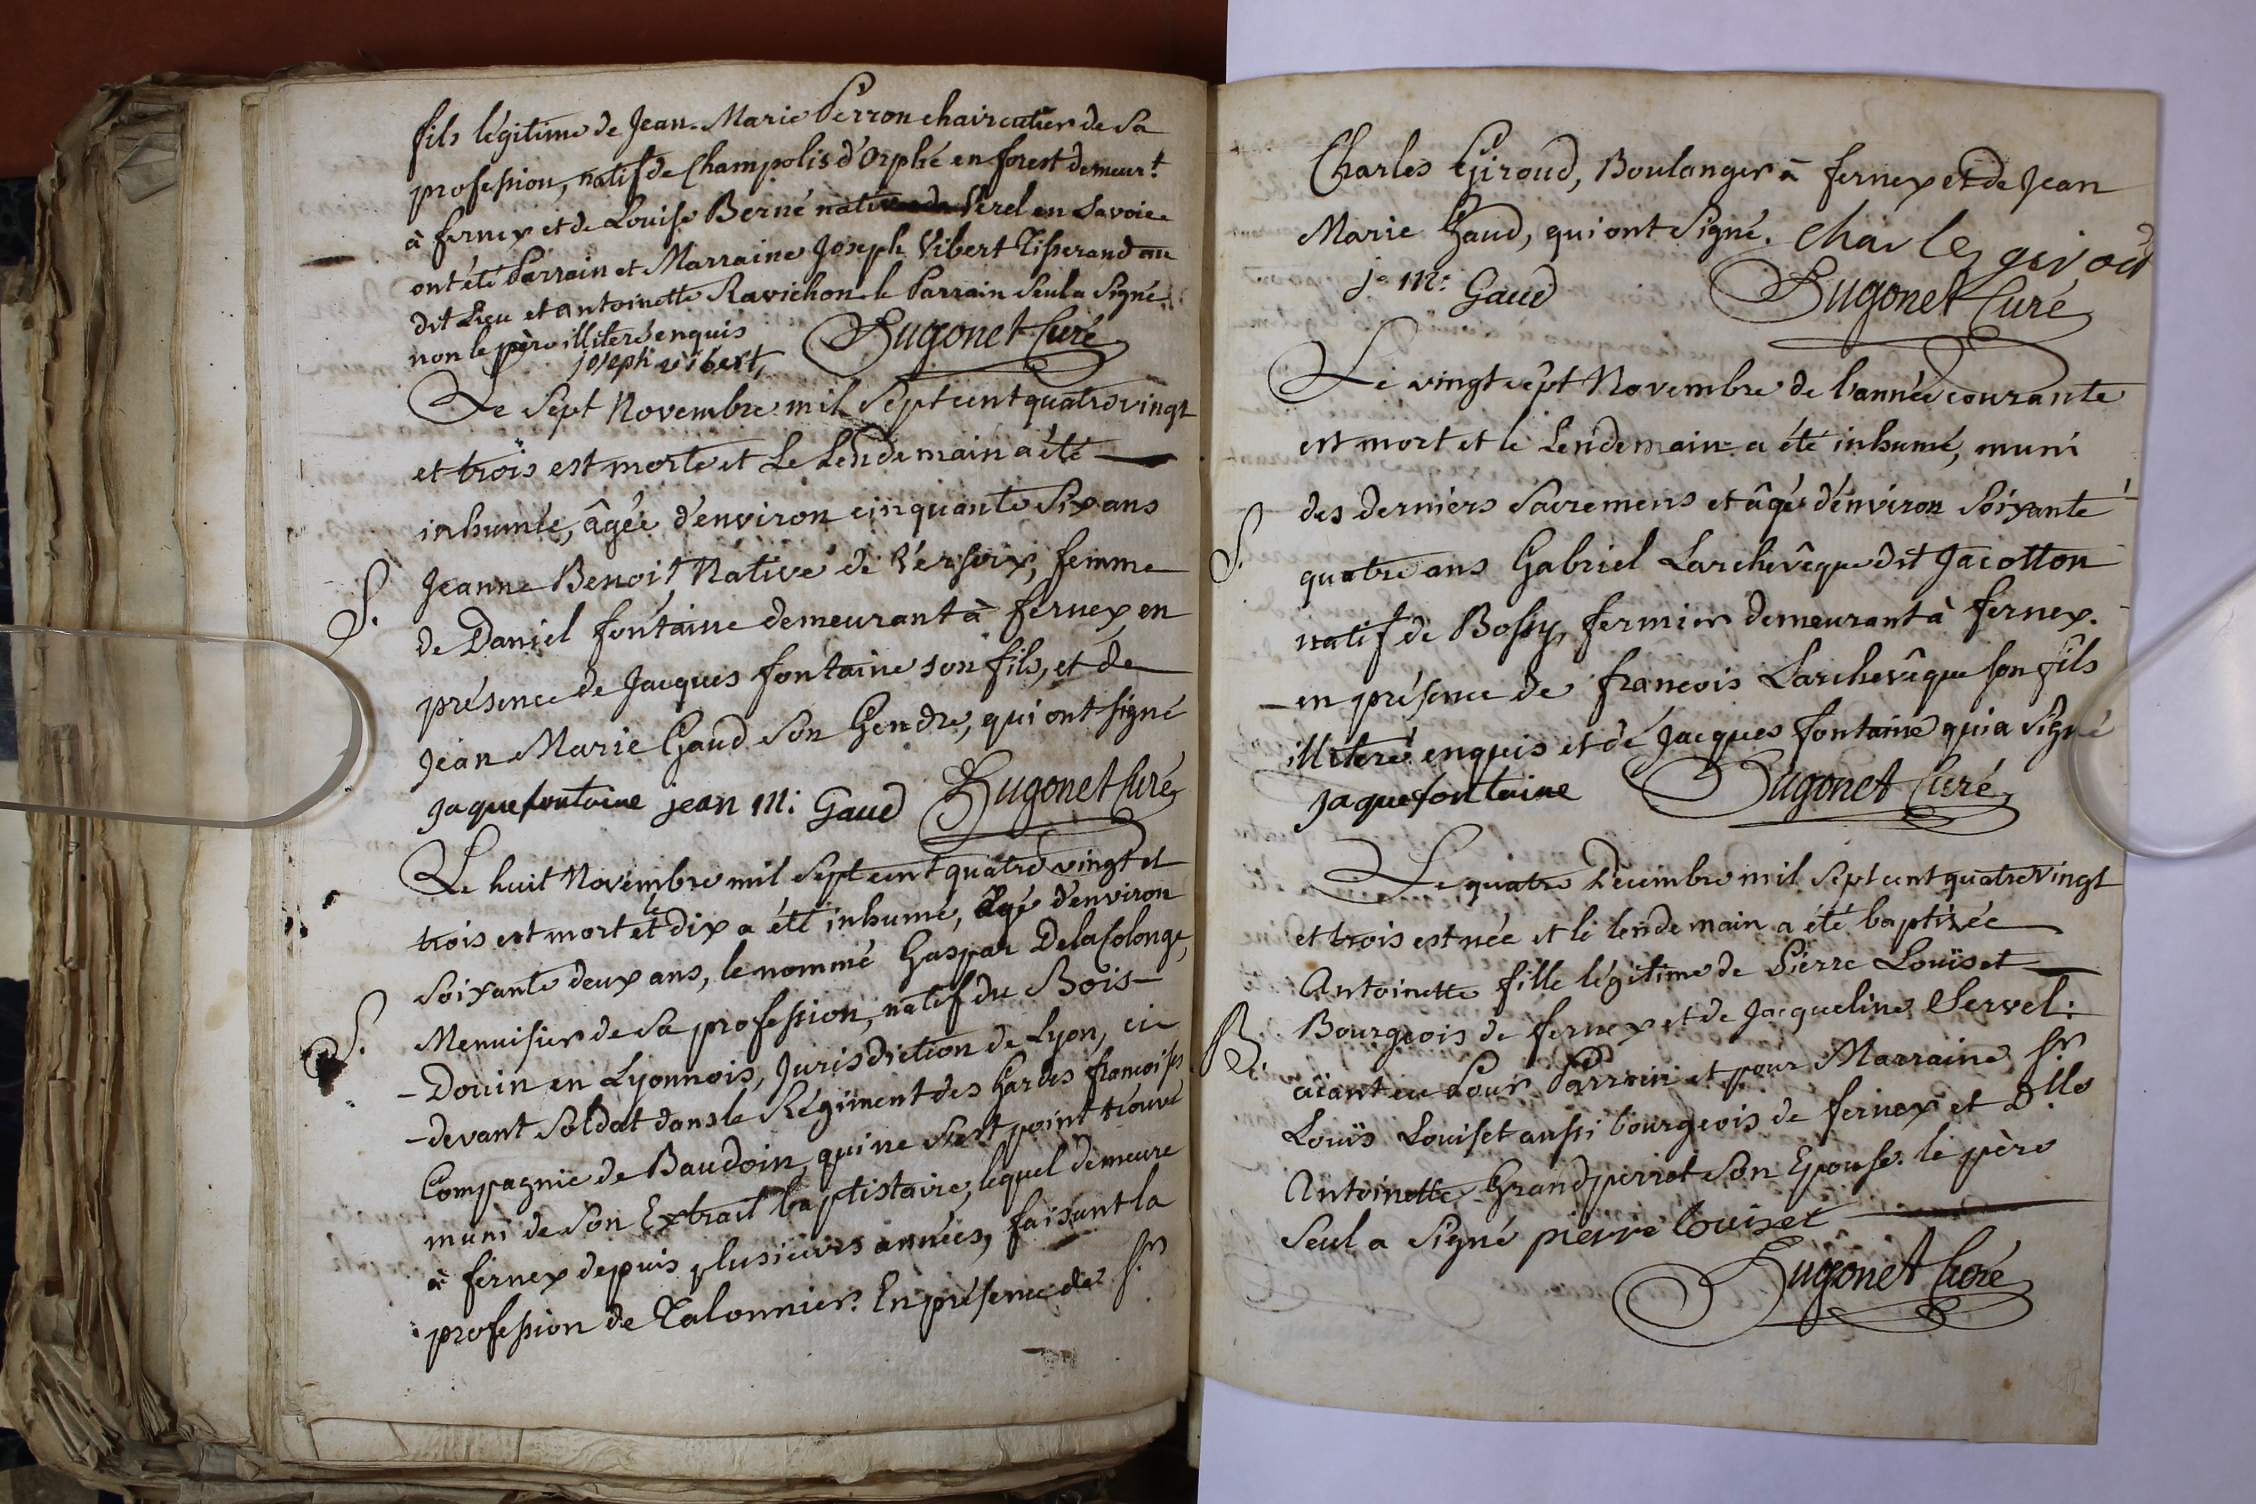 fils légitime de Jean-Marie Perron chaircutier de sa
profession, natif de Champolis d'Orphé en forest demeur.t
à fernex et de Louise Berné native de Verel en Savoie
ont été Parrain et Marraine Joseph Vibert Tisserand au
dit Lieu et antoinette Ravichon le Parrain seul a signé
non le père illiteré enquis
joseph vibert, Hugonet Curé
Le sept Novembre mil sept cent quatre vingt
et trois est morte et Le Lendemain a été
inhumée, âgée d'environ cinquante six ans
S. Jeanne Benoit, Native de Versoix, femme
de Daniel fontaine demeurant à fernex, en
présence de Jacques fontaine son fils, et de
Jean Marie Gaud son Gendre, qui ont signé
jaque fontaine jean m: Gaud Hugonet Curé
Le huit Novembre mil sept cent quatre vingt et
trois est mort et le dix a été inhumé, âgé d'environ
soixante deux ans, le nommé Gaspar Delasolonge,
S. Menuisier de sa profession, natif du Bois-
-Douin en Lyonnois, Jurisdiction de Lyon, ci-
-devant soldat dans le Régiment des Gardes françoises
Compagnie de Baudoin, qui ne s'est point trouvé
muni de son Extrait baptistaire, lequel demeure
à fernex depuis plusieurs années, faisant la
profession de Talonnier. En présence de Sr
Charles Giroud, Boulanger à fernex et de Jean
Marie Gaud, qui ont signé. charles giroud
je m: Gaud Hugonet Curé
Le vingt sept Novembre de l'année courante
est mort et le Lendemain a été inhumé, muni
des derniers Sacremens et âgé d'environ soixante
S. quatre ans Gabriel Larchevêque dit Jacotton
natif de Bossy, fermier demeurant à fernex.
en présence de françois Larchevêque son fils
illiteré enquis et de Jacques fontaine qui a signé
jaque fontaine Hugonet Curé
Le quatre Decembre mil sept cent quatre vingt
et trois est née et le lendemain a été baptisée
Antoinette fille légitime de Pierre Louiset
B. Bourgeois de fernex et de Jacqueline Servel:
aiant eu Pour Parrain et pour Marraine Sr
Louïs Louiset aussi bourgeois de fernex et Dlle
Antoinette Grandperret son Epouse. le père
seul a signé pierre louiset
Hugonet Curé